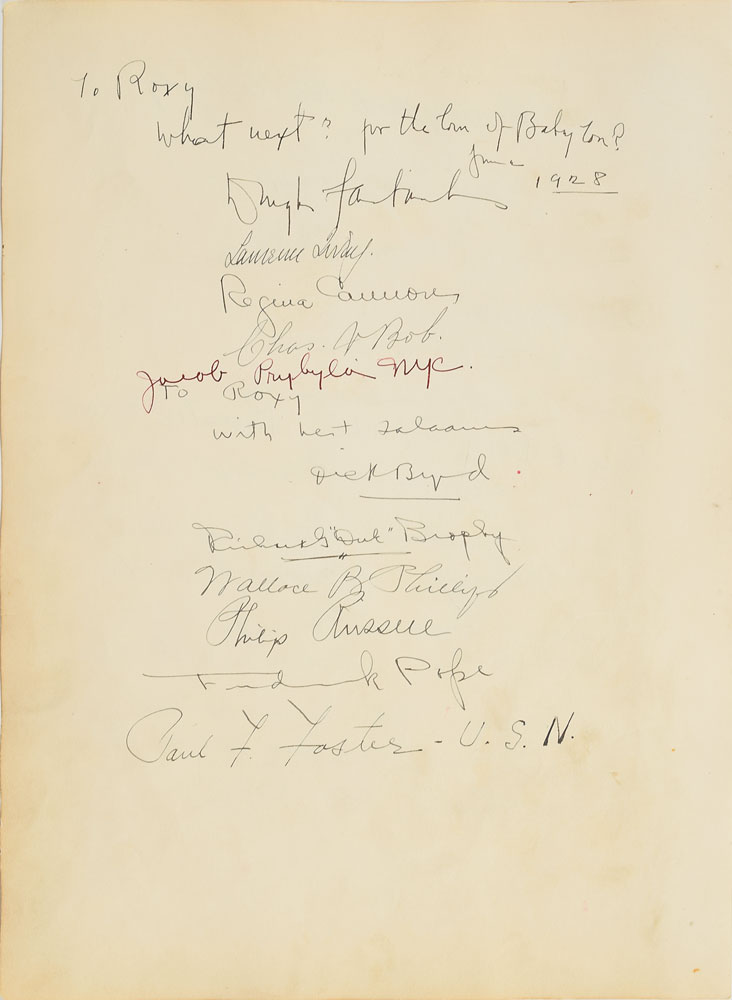 To Roxy
What next? for the love of Babylon?
June
1928
Laurence Irving.
Regina Cannon
Chas. V Bob.
Jacob Przybyla NYC.
To Roxy
with best salaams
Dick Byrd
Richard G "Dick" Brophy
Wallace B Phillips
Philip Russell
Frederick Pope
Paul F. Foster - U.S.N.